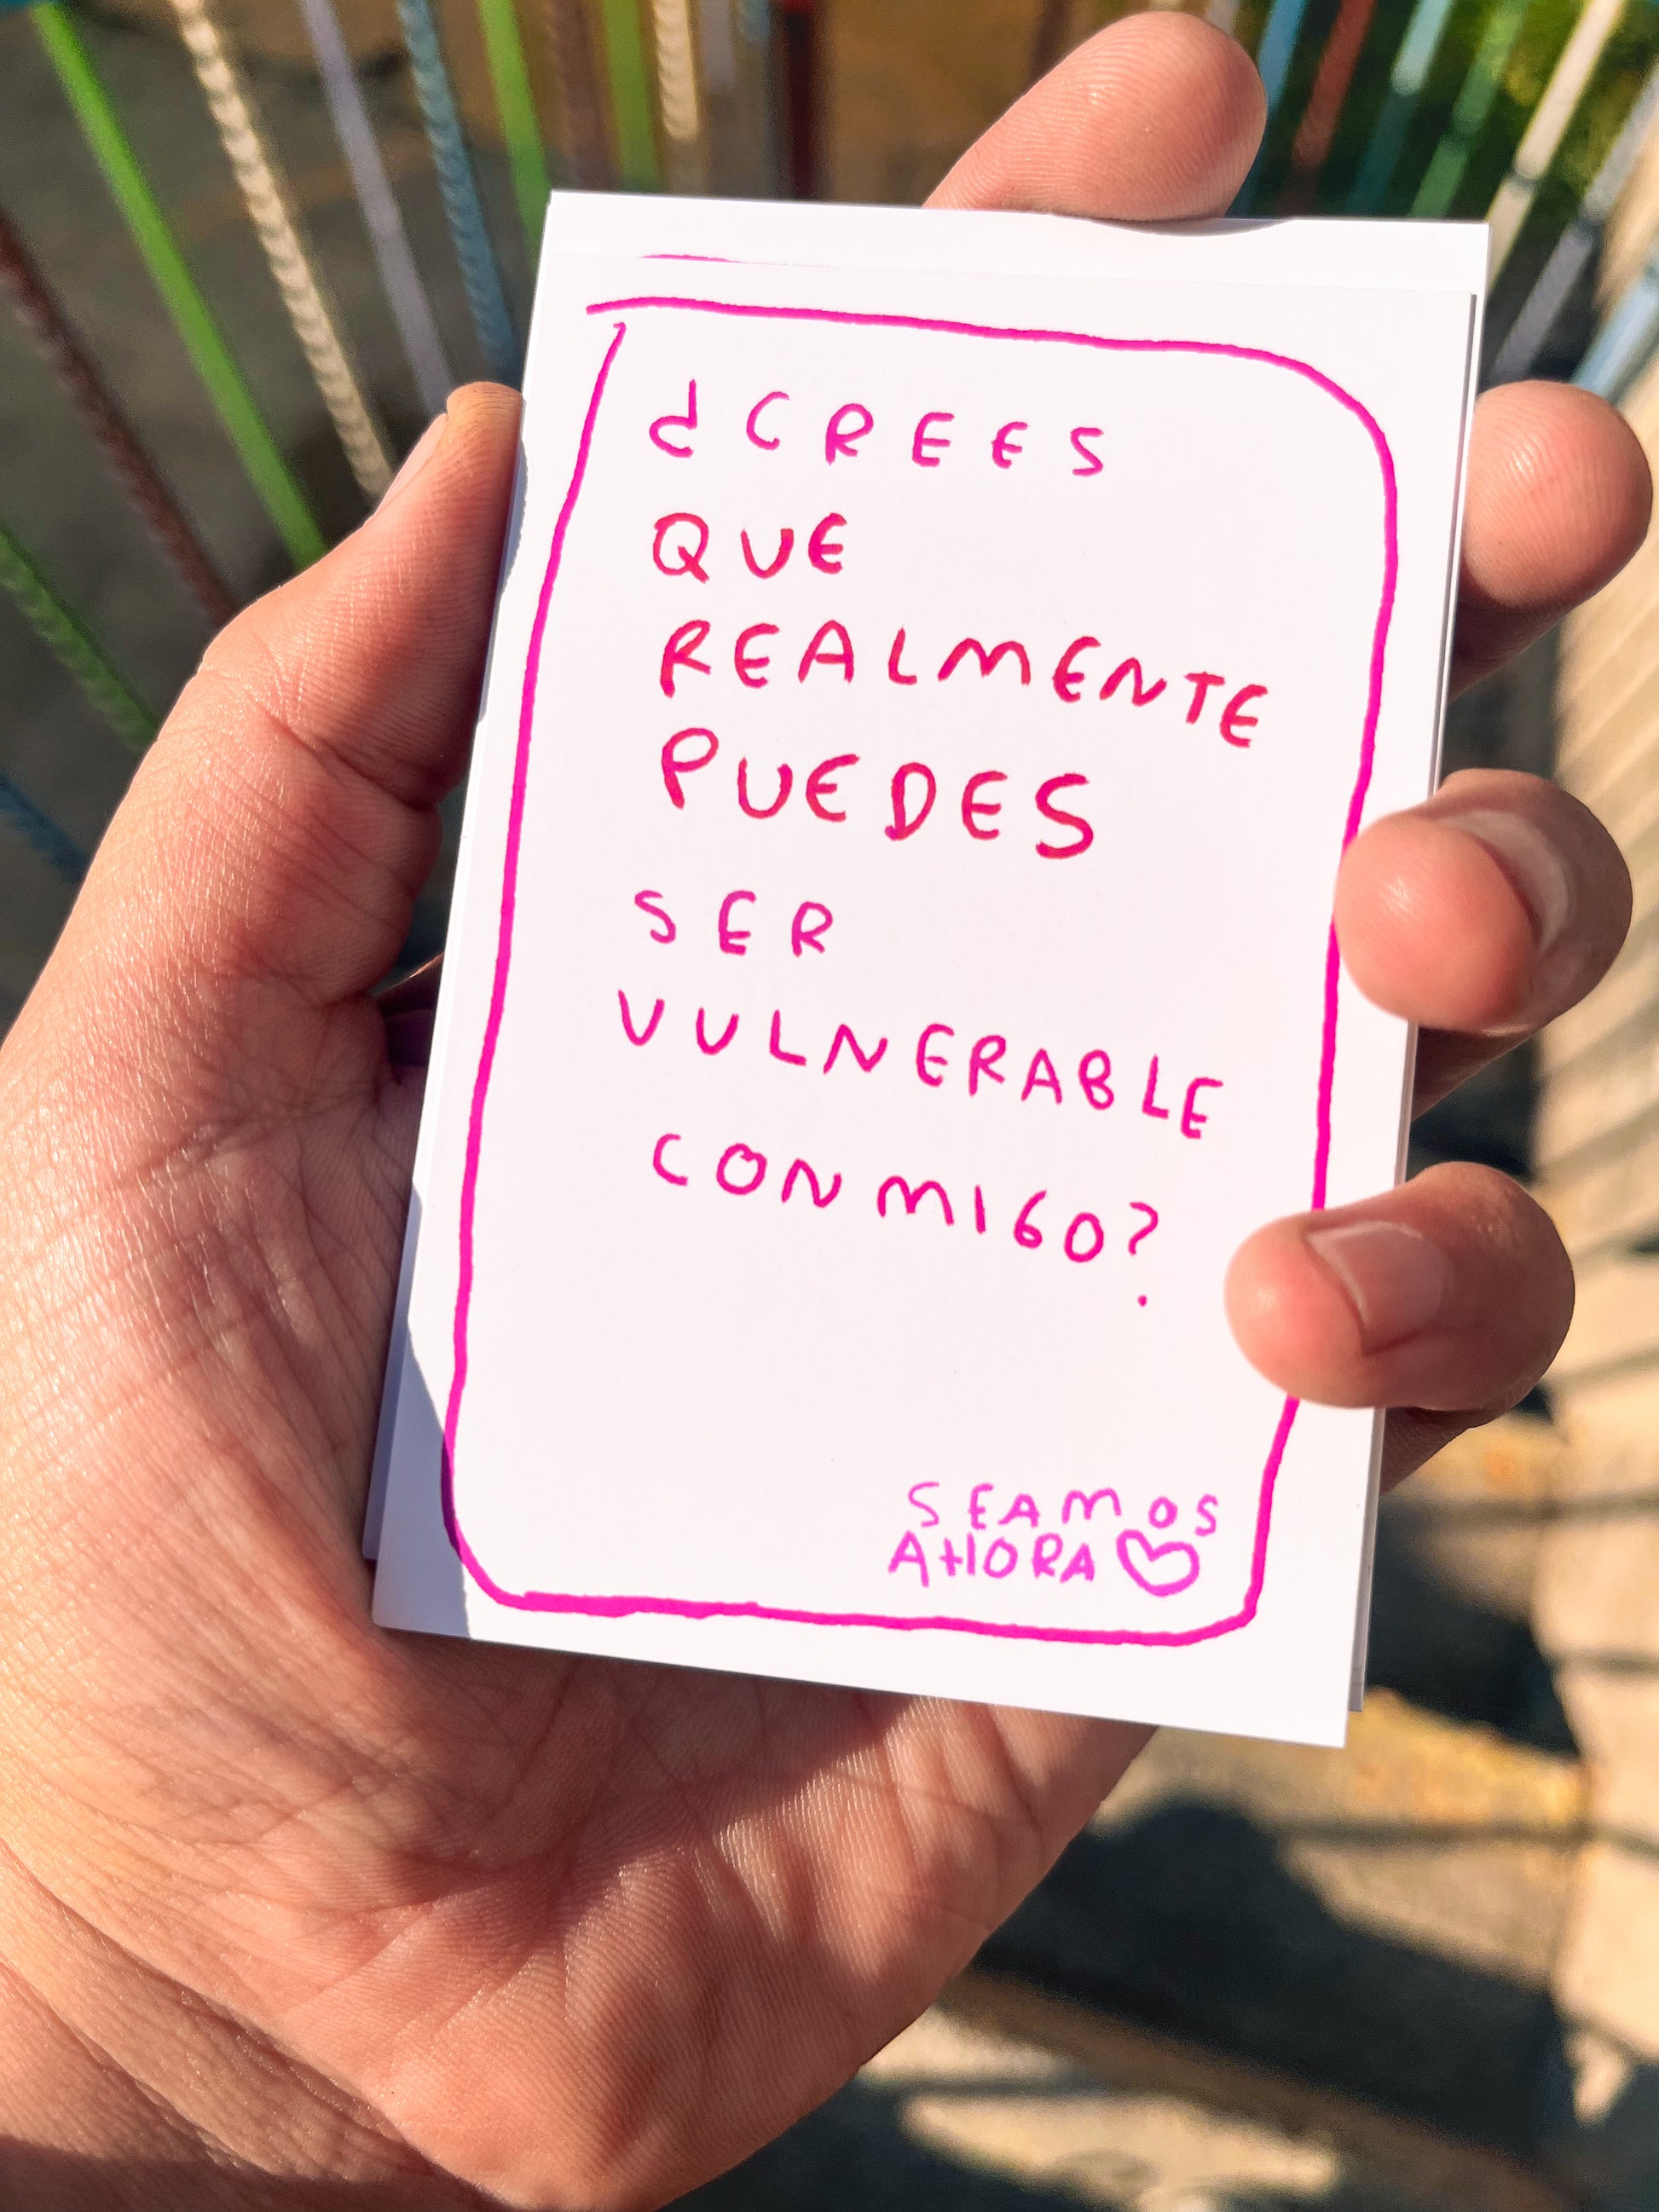 ¿CREES
QUE
REALMENTE
PUEDES
SER
VULNERABLE
CONMIGO?
SEAMOS
AHORA